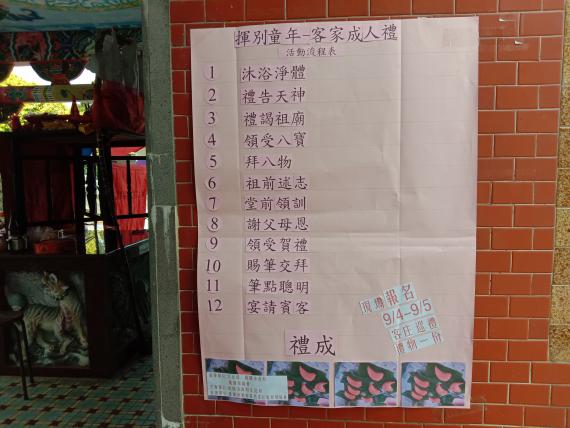 揮別童年-客家成人禮
活動流程表
1 沐浴淨體
2 禮告天神
3 禮謁祖廟
4 領受八寶
5 拜八物
6 祖前述志
7 堂前領訓
8 謝父母恩
9 領受賀禮
10 賜筆交拜
11 筆點聰明
12 宴請賓客
禮成
現場報名
9/4-9/5
客庄巡禮
禮物一份